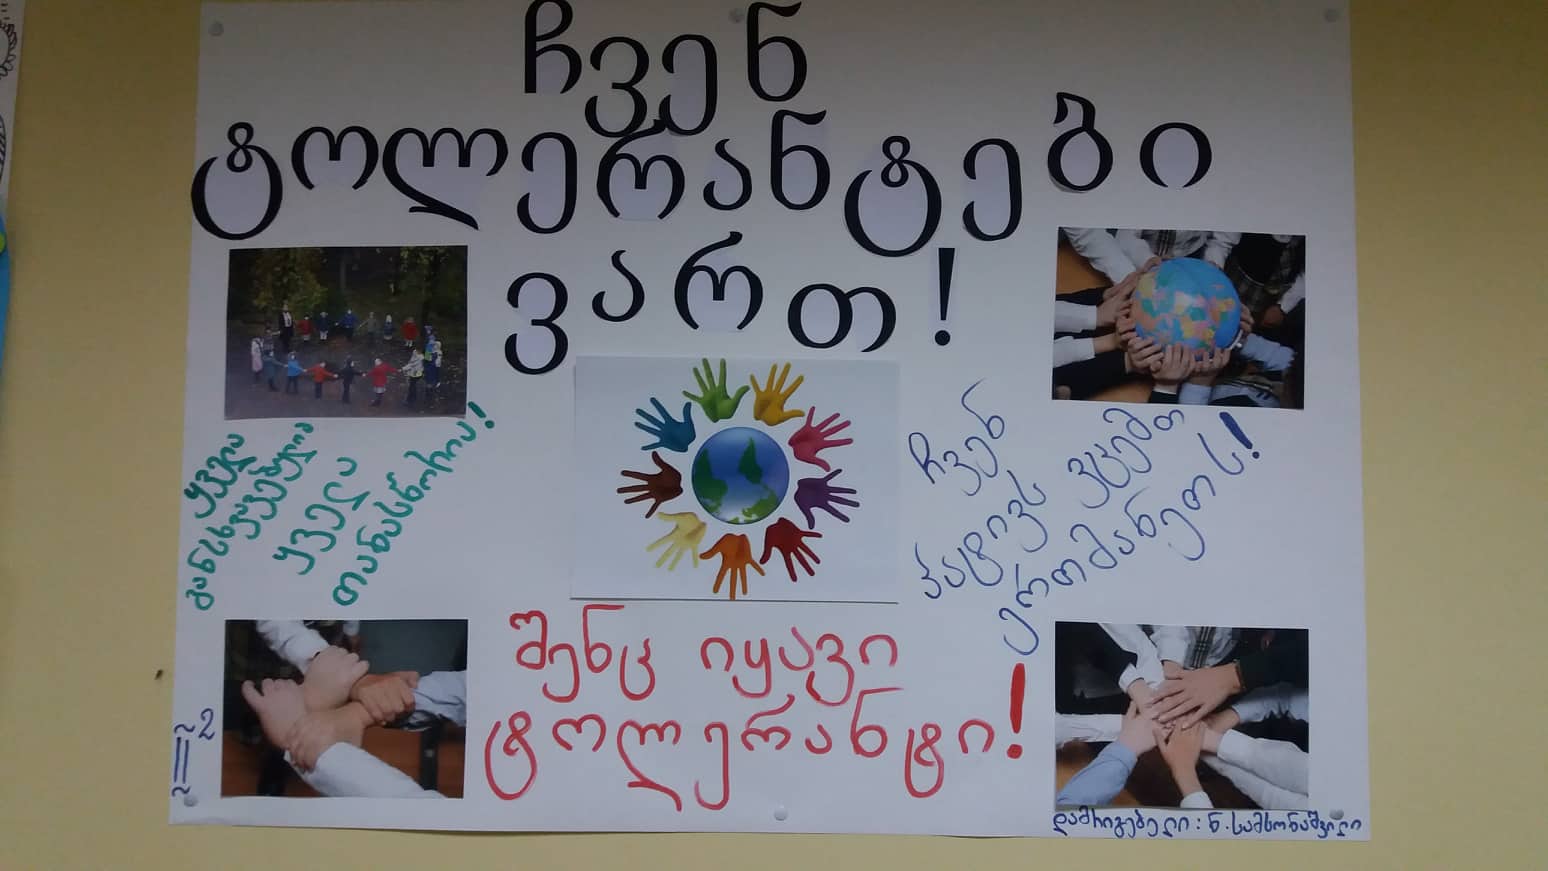 ჩვენ
ტოლერანტები
ვართ!
ყველა
განსხვავებულია
ყველა
თანასწორია!
ჩვენ
პატივს ვცემთ
ერთმანეთს!
შენც იყავი
ტოლერანტი!
დამრიგებელი: ნ. სამსონაშვილი